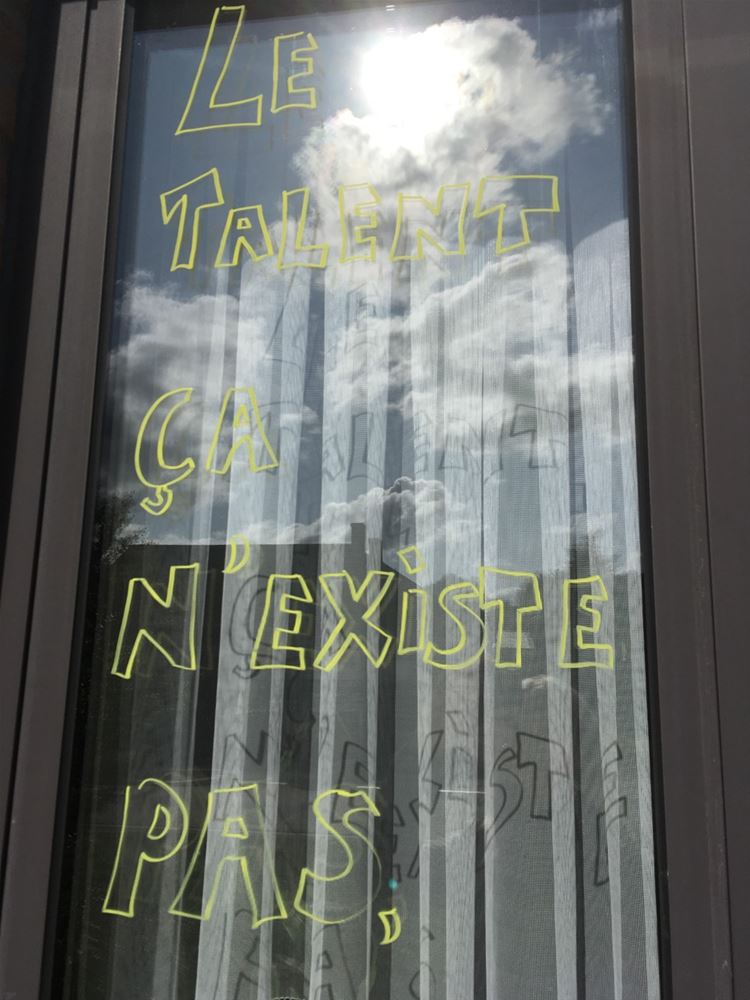 LE
TALENT
ÇA
N'EXiSTE
PAS,